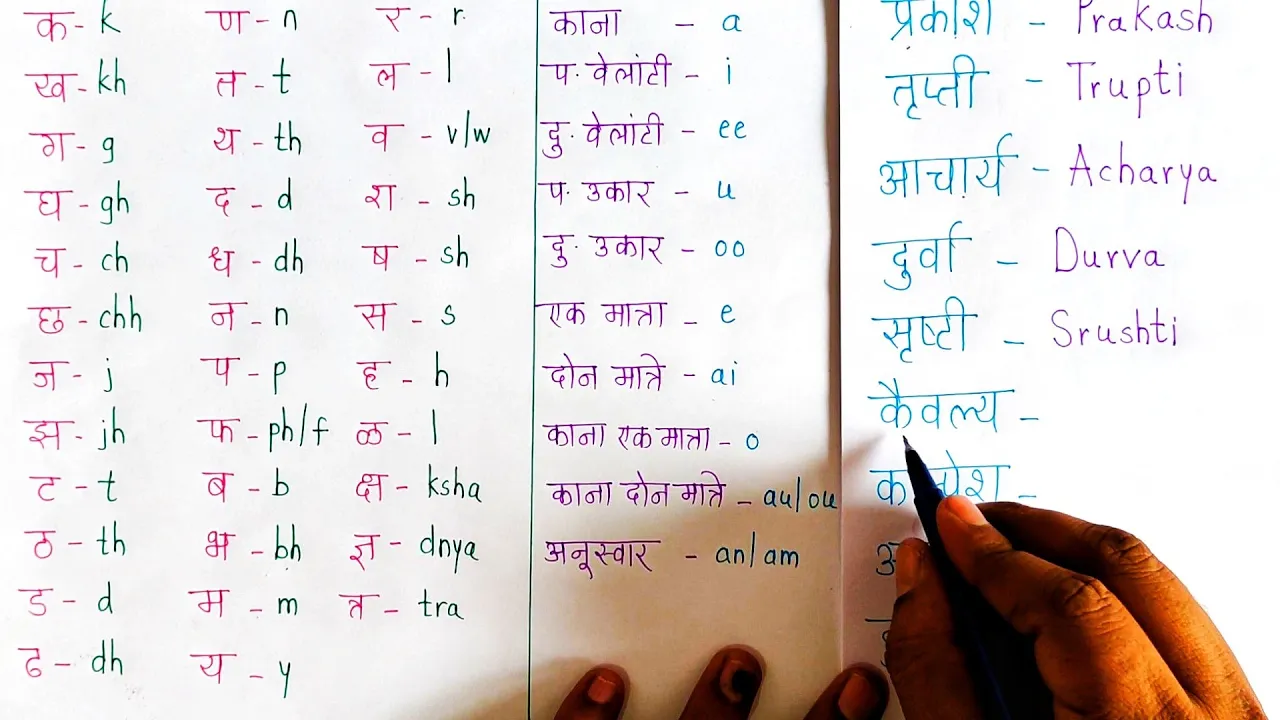 क - k
ख - kh
ग - g
घ - gh
च - ch
छ - chh
ज - j
झ - jh
ट - t
ठ - th
ड - d
ढ - dh
ण - n
त - t
थ - th
द - d
ध - dh
न - n
प - p
फ - ph/f
ब - b
भ - bh
म - m
य - y
र - r
ल - l
व - v/w
श - sh
ष - sh
स - s
ह - h
ळ - l
क्ष - ksha
ज्ञ - dnya
त्र - tra
काना - a
प. वेलांटी - i
दु. वेलांटी - ee
प. उकार - u
दु. उकार - oo
एक मात्रा - e
दोन मात्रे - ai
काना एक मात्रा - o
काना दोन मात्रे - au/ou
अनुस्वार - an/am
प्रकाश - Prakash
तृप्ती - Trupti
आचार्य - Acharya
दुर्वा - Durva
सृष्टी - Srushti
कैवल्य -